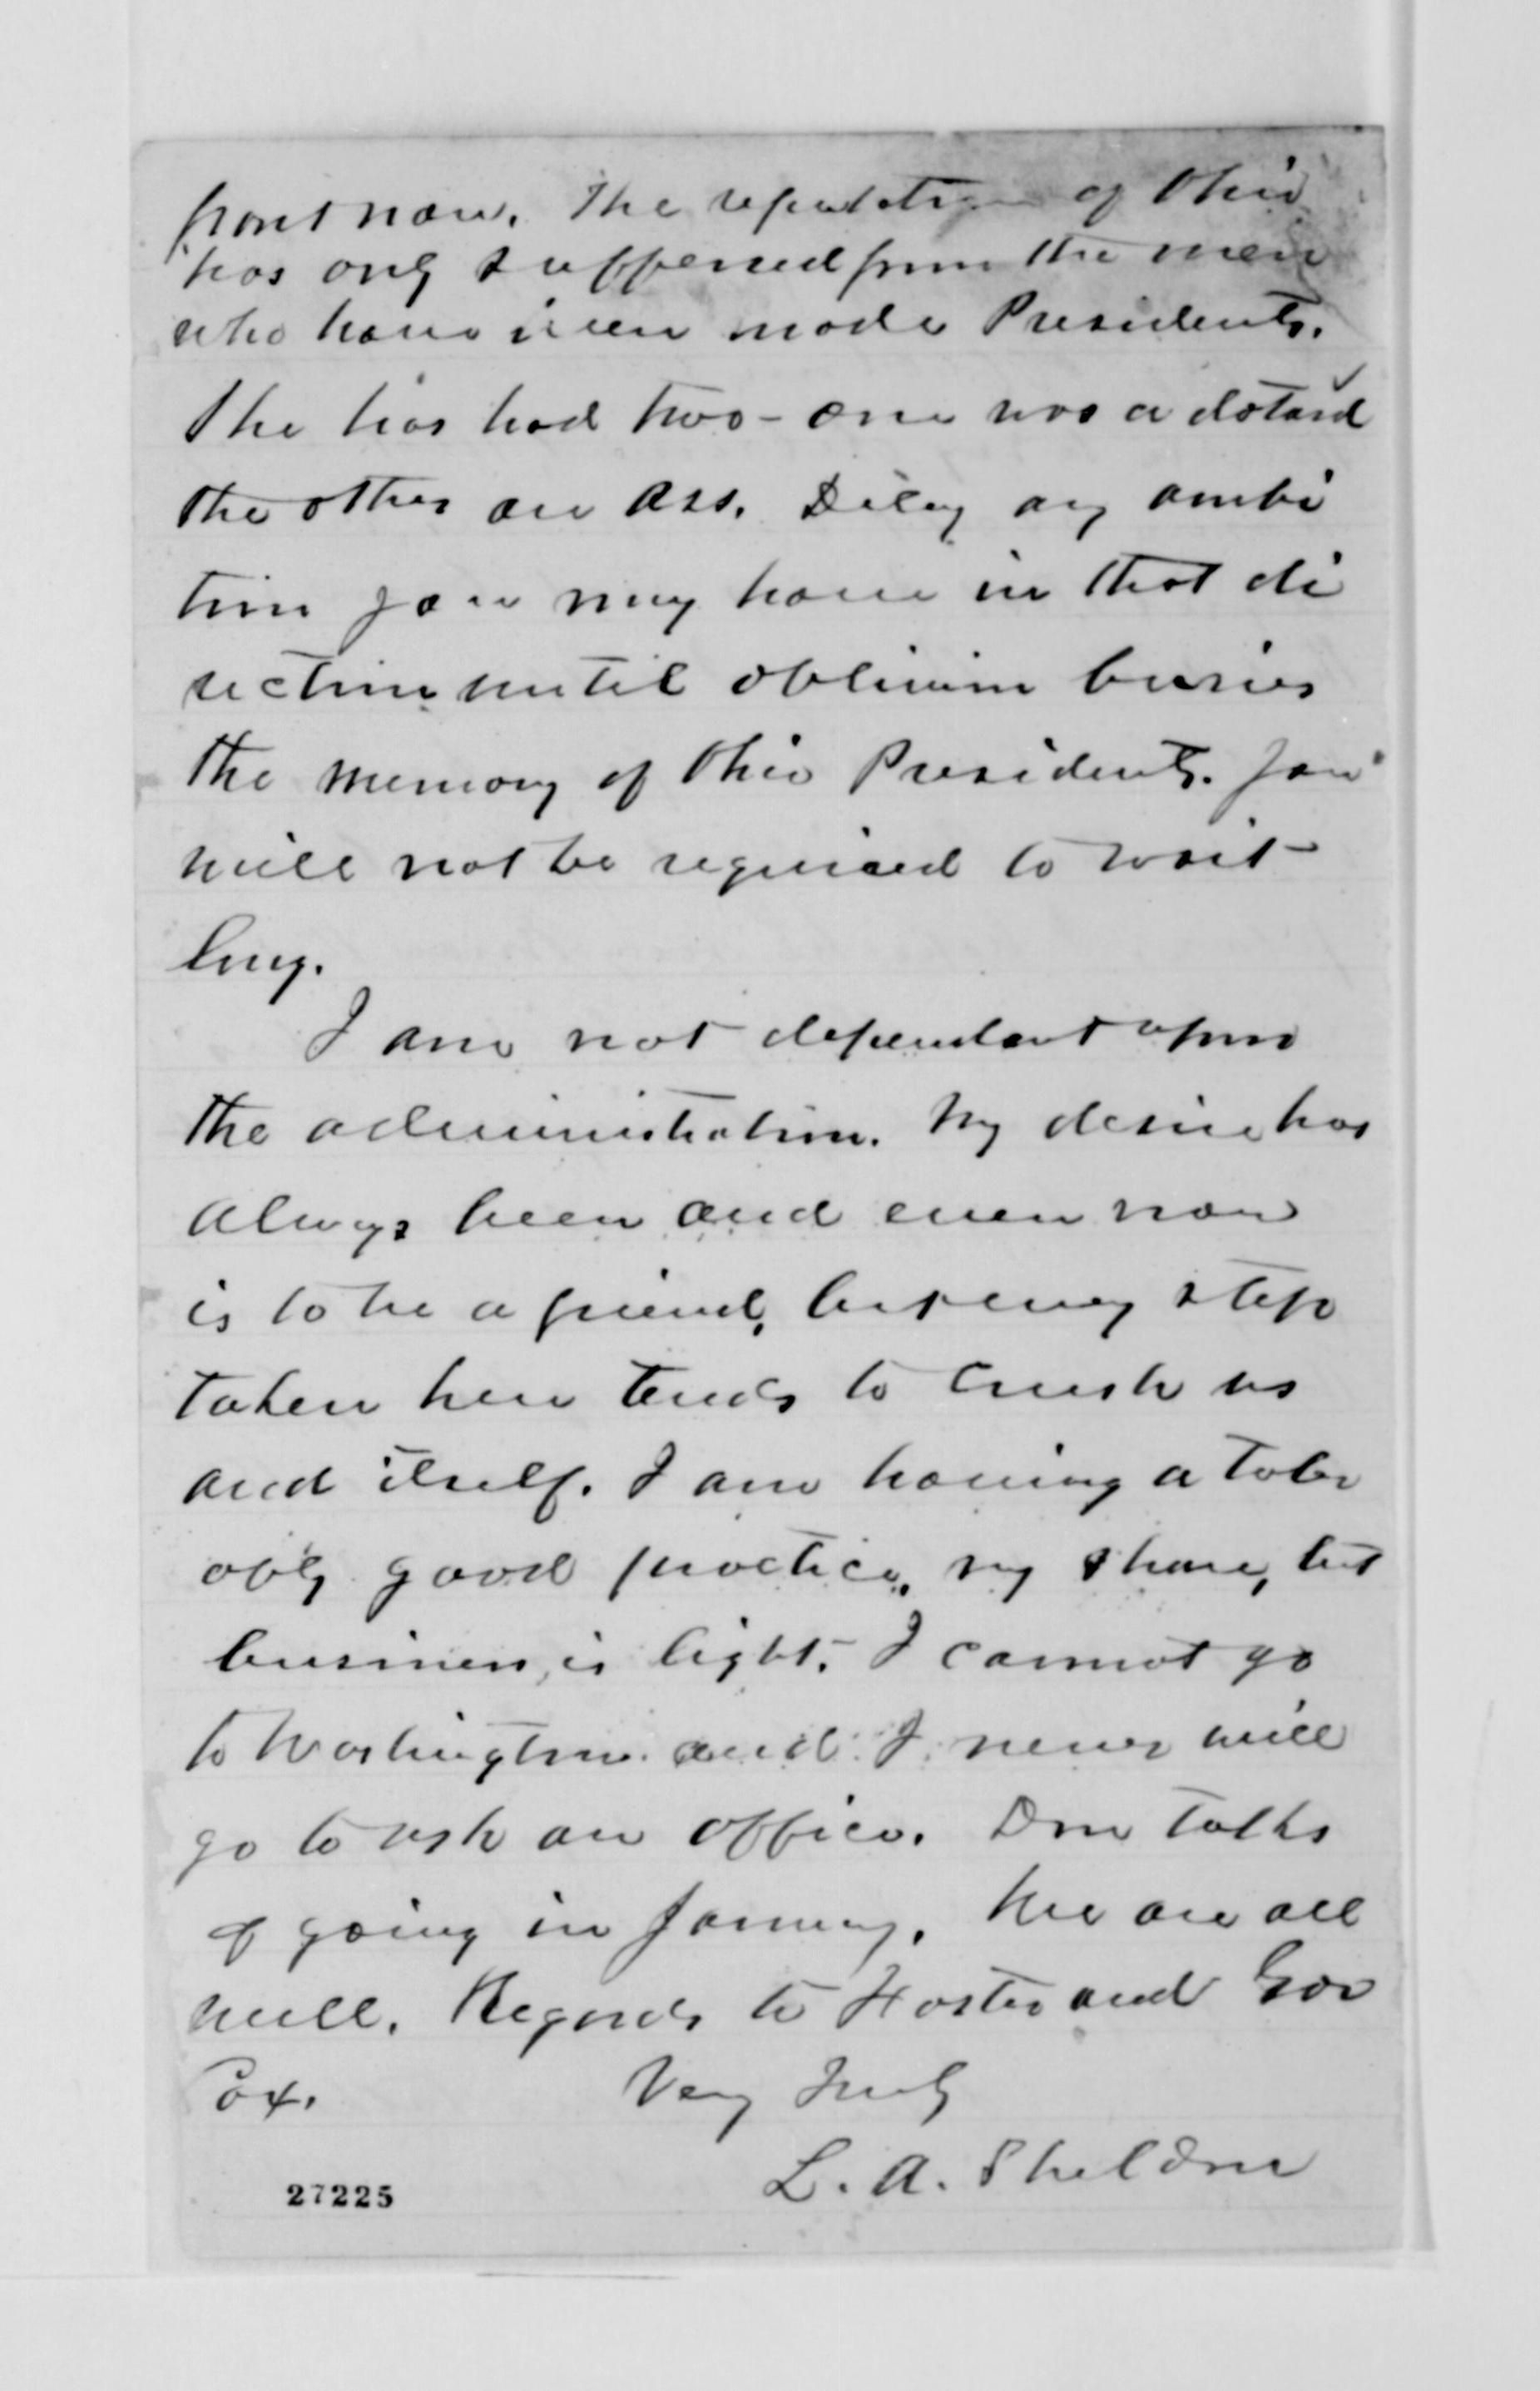 front now. The reputation of Ohio
has only suffered from the men
who have been made Presidents.
She has had two - one was a dotard
the other an ass. Delay any ambi
tion you may have in that di
rection until oblivion buries
the memory of Ohio Presidents. You
will not be required to wait
long.
I am not dependent upon
the administration. My desire has
always been and even now
is to be a friend, but every step
taken here tends to crush us
and itself. I am having a toler
ably good practice, my share, but
business is light. I cannot go
to Washington and I never will
go to ask an office. Don talks
of going in January. We are all
well. Regards to Foster and Gov
Cox. Very Truly
L. A. Sheldon
27225